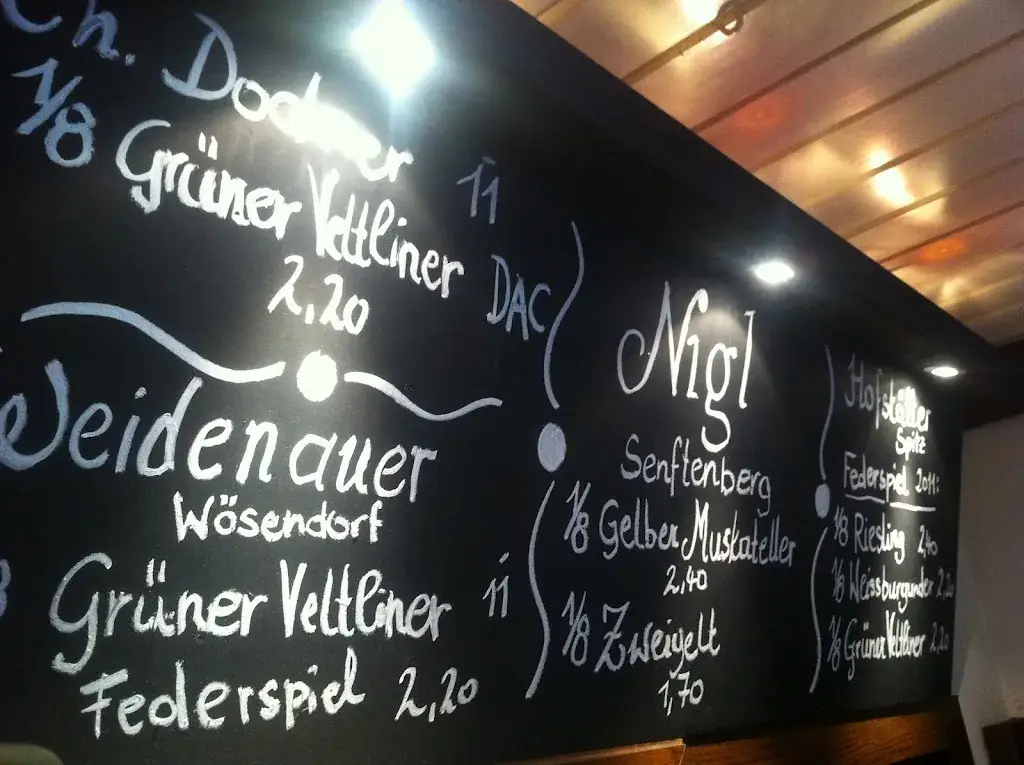 Ch. Docker
1/8 Grüner Veltliner 11
2,20 DAC
Weidenauer
Wösendorf
Grüner Veltliner 11
Federspiel 2,20
Nigl
Senftenberg
1/8 Gelber Muskateller
2,40
1/8 Zweigelt
1,70
Hofstätter
Spitz
Federspiel 2011:
1/8 Riesling 2,40
1/8 Weissburgunder 2,20
1/8 Grüner Veltliner 2,20